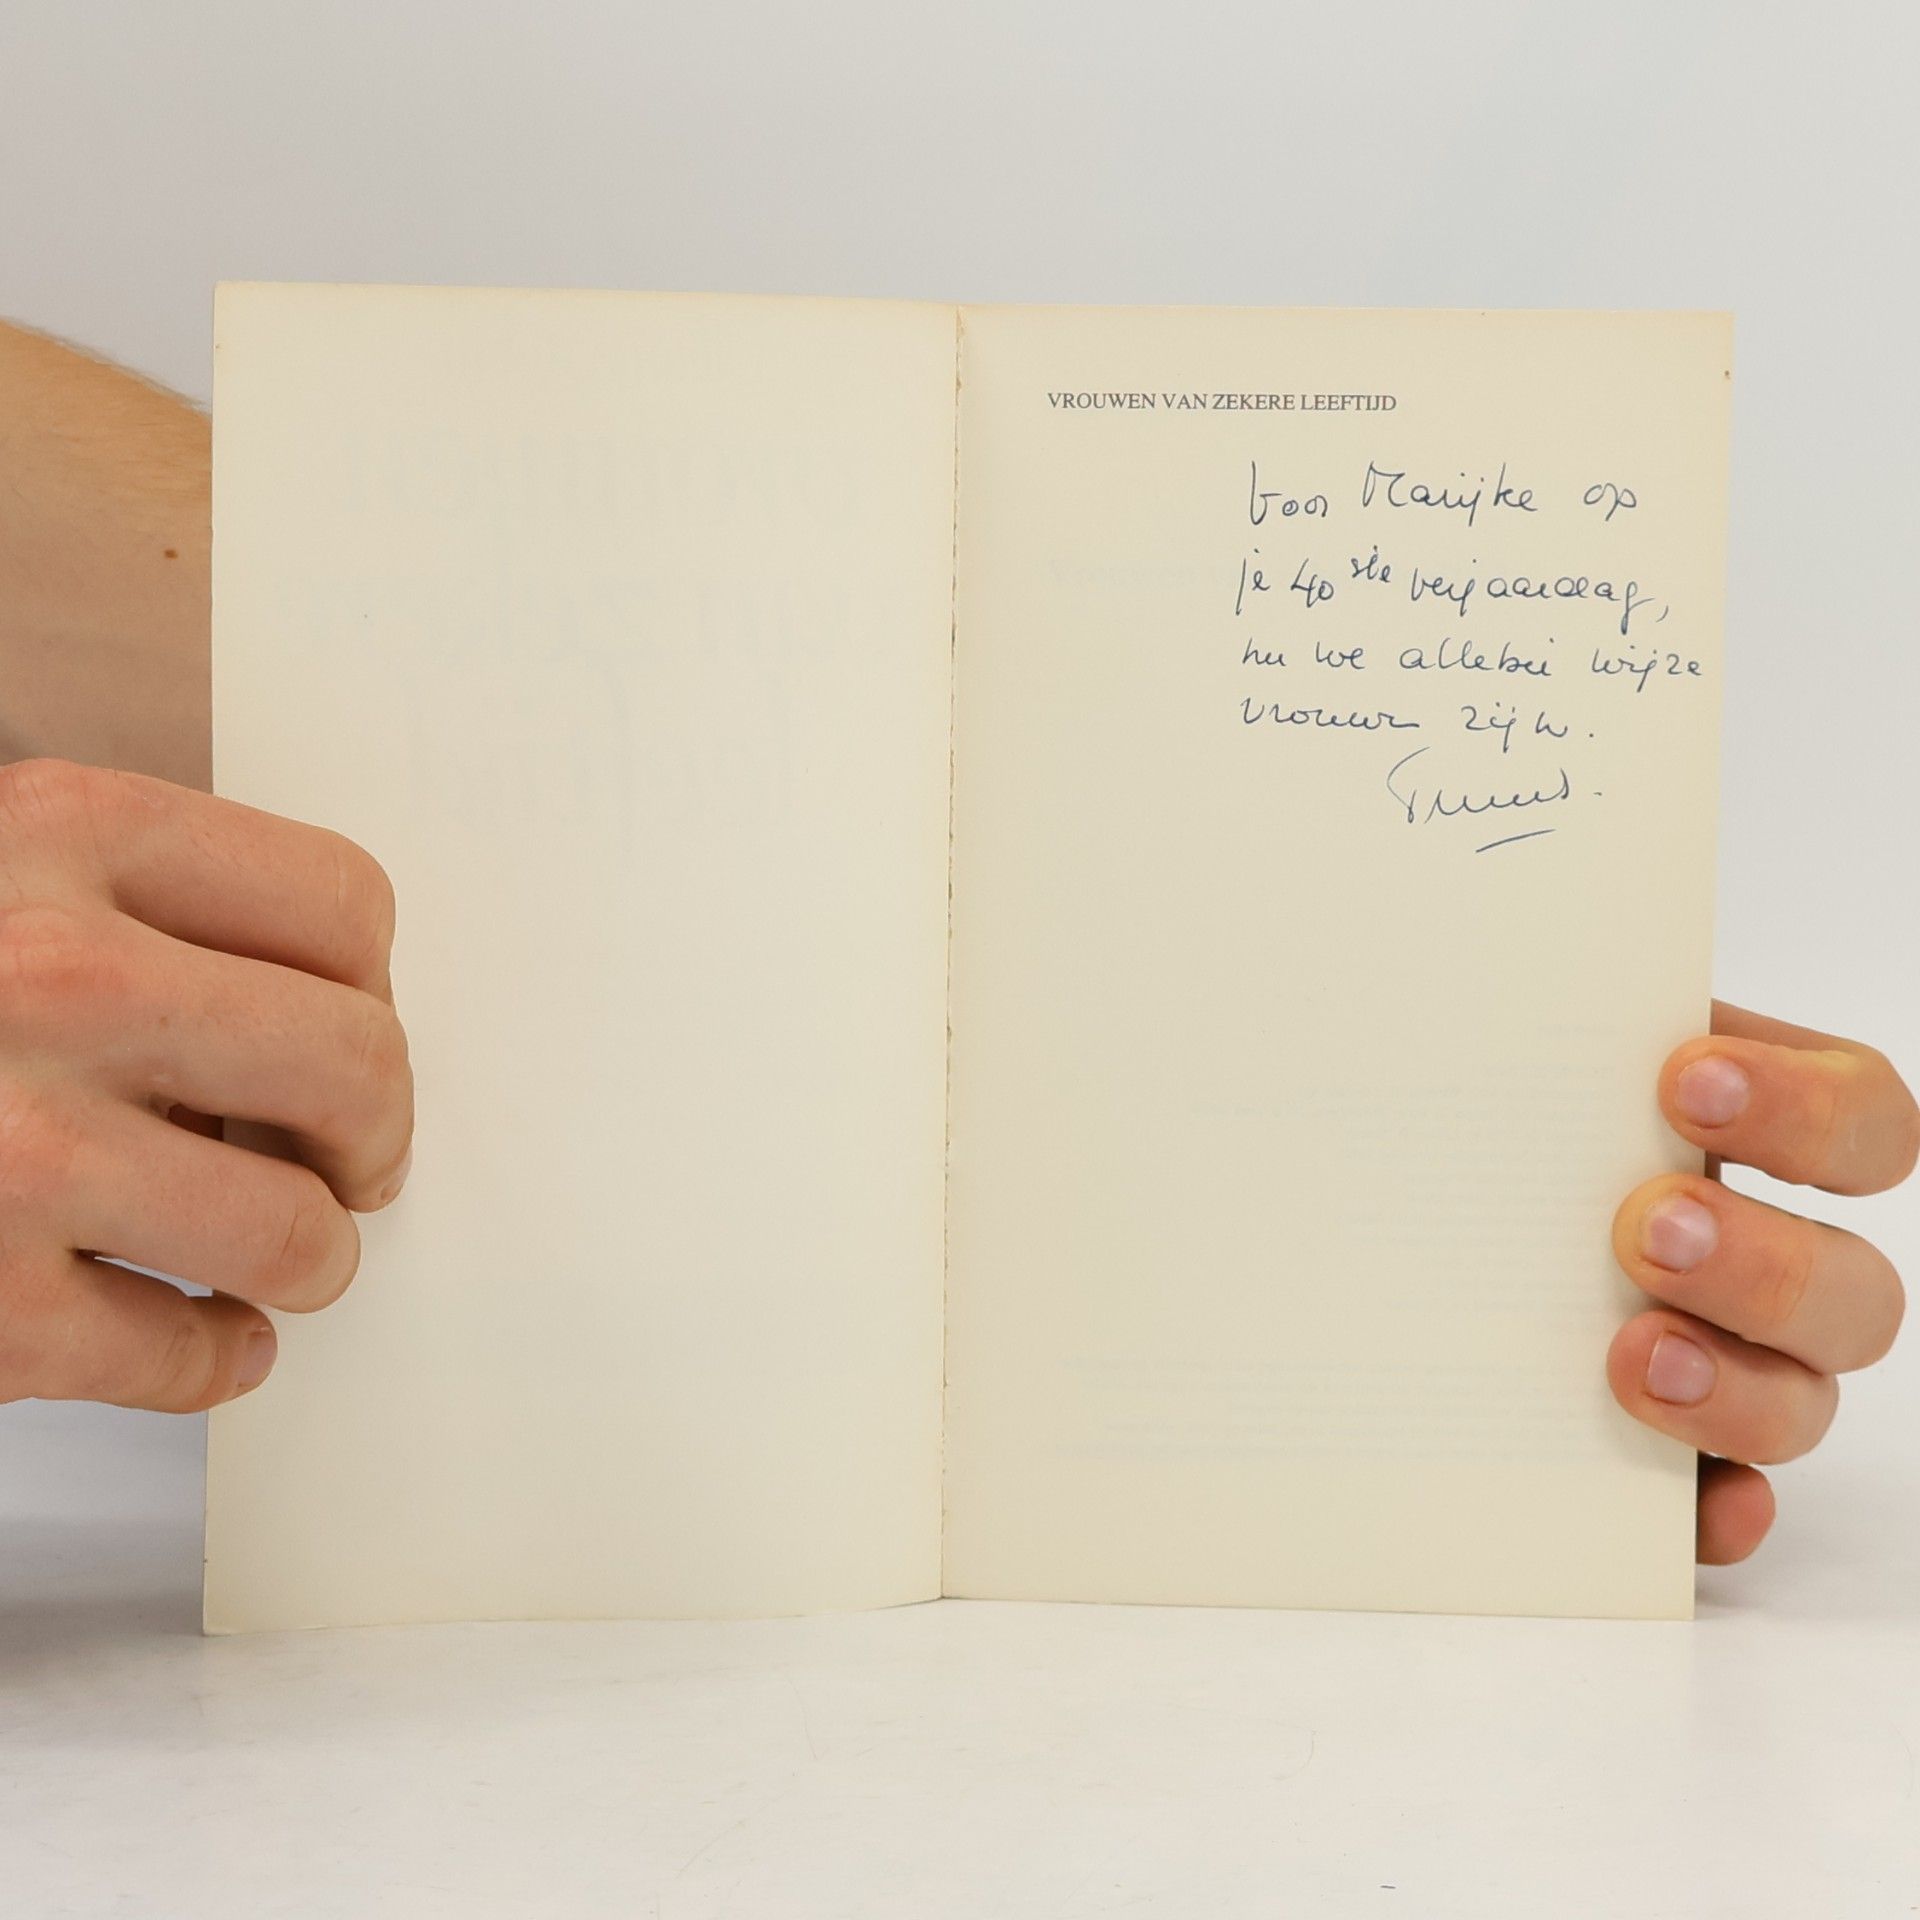 VROUWEN VAN ZEKERE LEEFTIJD
Voor Marijke op
je 40ste verjaardag,
nu we allebei wijze
vrouwen zijn.
Truus.